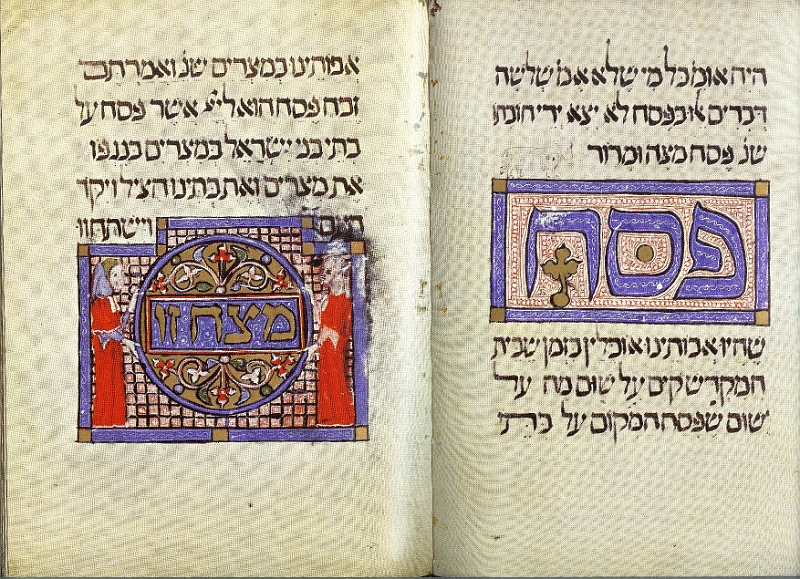 היה אומ' כל מי שלא אמ' שלשה
דברים אלו בפסח לא יצא ידי חובתו
שנ' פסח מצה ומרור
פסח
שהיו אבותינו אוכלין בזמן שבית
המקדש קים על שום מה על
שום שפסח המקום על בתי
אבותינו במצרים שנ' ואמרתם
זבח פסח הוא ליי' אשר פסח על
בתי בני ישראל במצרים בנגפו
את מצרים ואת בתינו הציל ויקד
העם וישתחוו
מצה זו